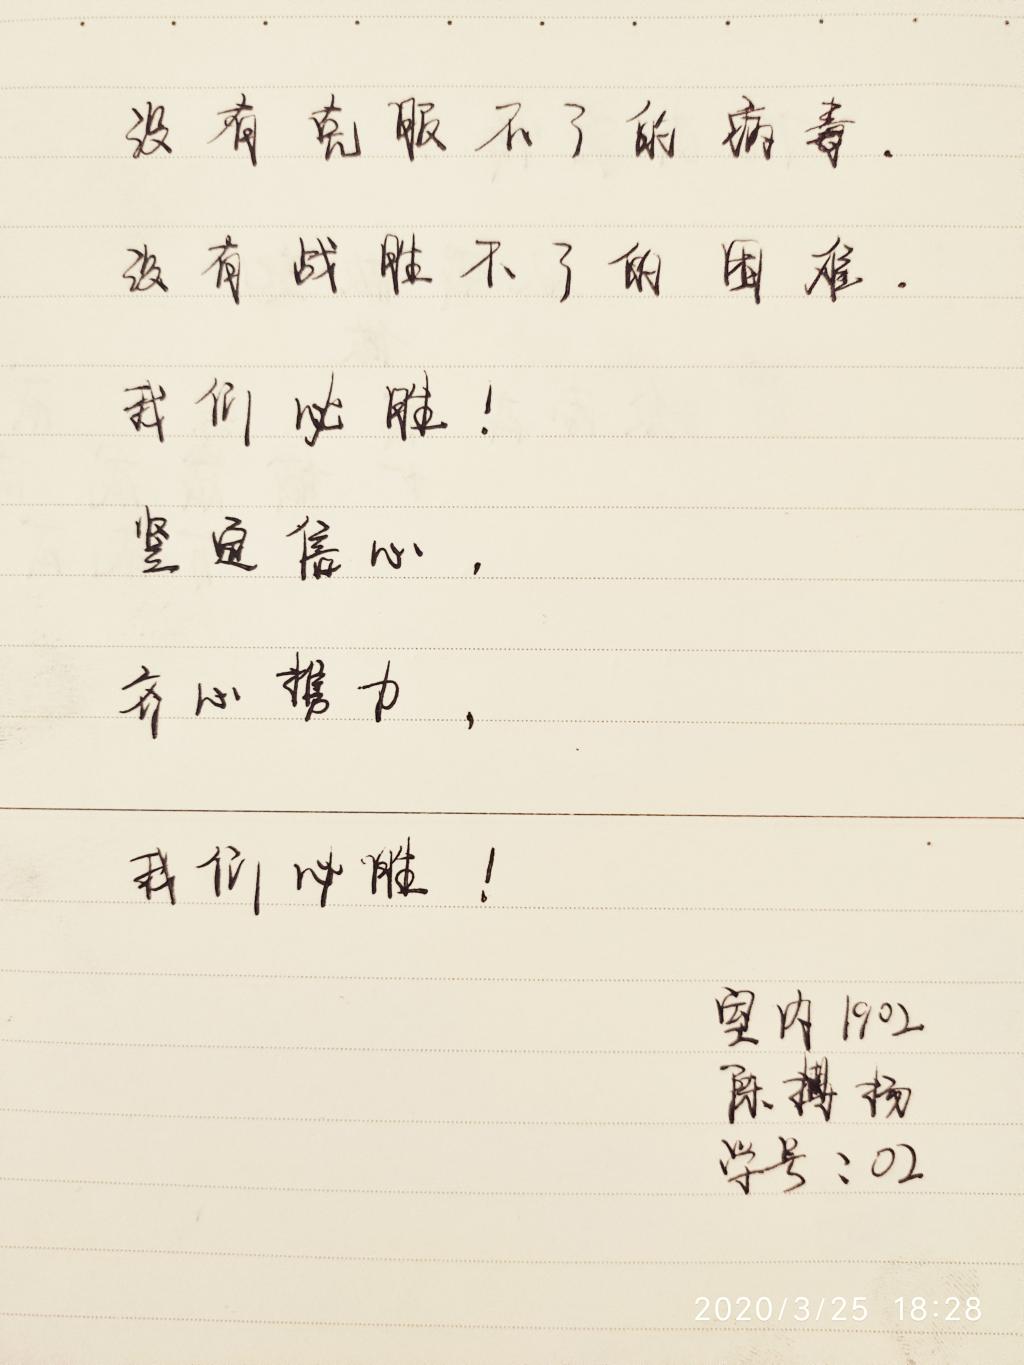 没有克服不了的病毒.
没有战胜不了的困难.
我们必胜！
坚定信心,
齐心携力,
我们必胜！
室内1902
陈搏扬
学号：02
2020/3/25 18:28